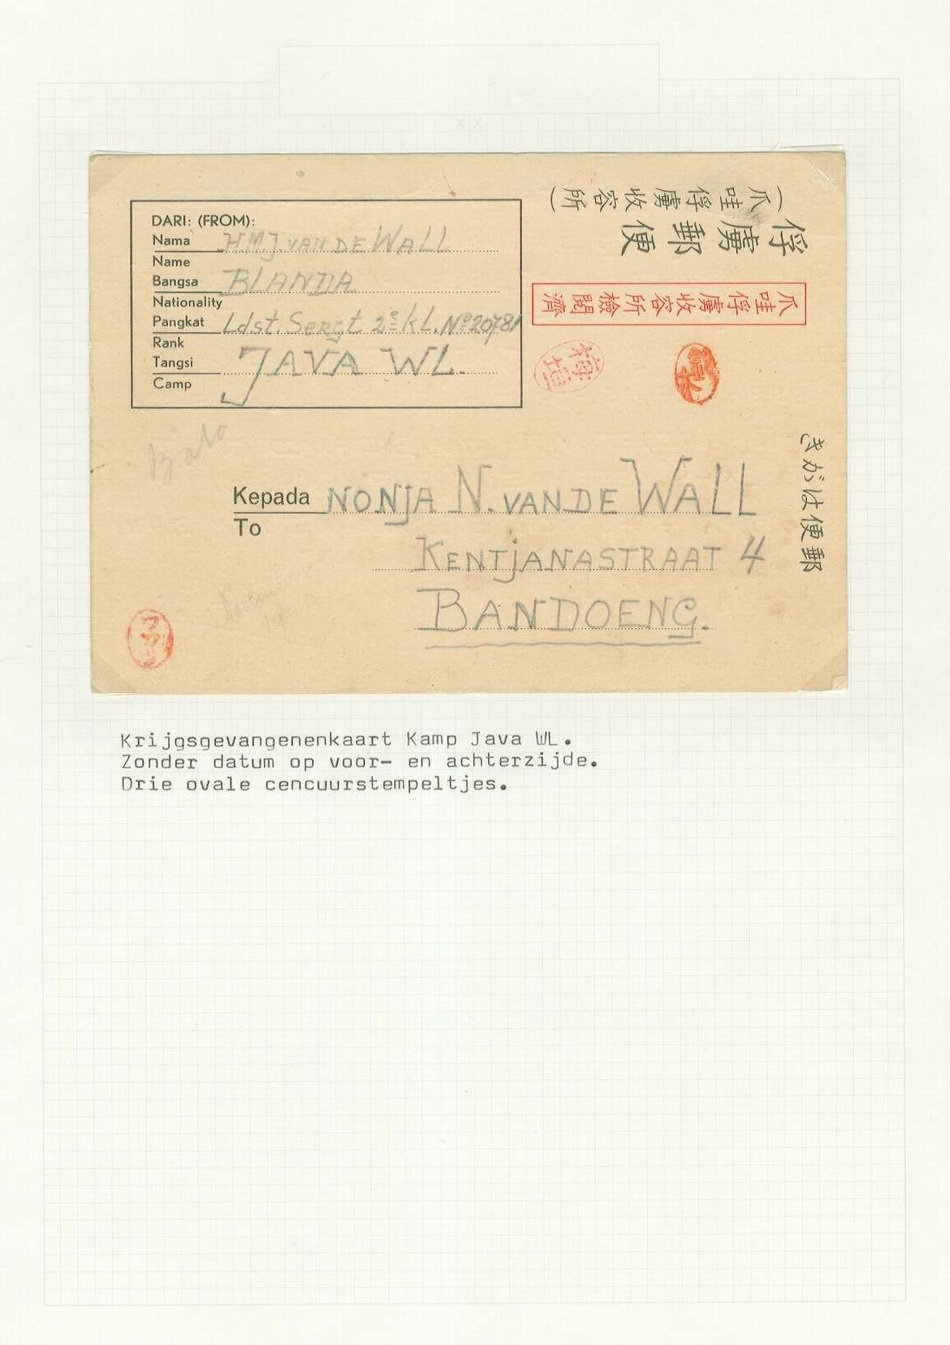 DARI: (FROM):
Nama H.M.J. VAN DE WALL
Name
Bangsa BLANDA
Nationality
Pangkat Ldst. Sergt 2e kl. No 20781
Rank
Tangsi JAVA WL.
Camp
(爪哇俘虜收容所)
俘虜郵便
爪哇俘虜收容所檢閱濟
きがは便郵
Kepada NONJA N. VAN DE WALL
To
KENTJANASTRAAT 4
BANDOENG.
Krijgsgevangenenkaart Kamp Java WL.
Zonder datum op voor- en achterzijde.
Drie ovale cencuurstempeltjes.